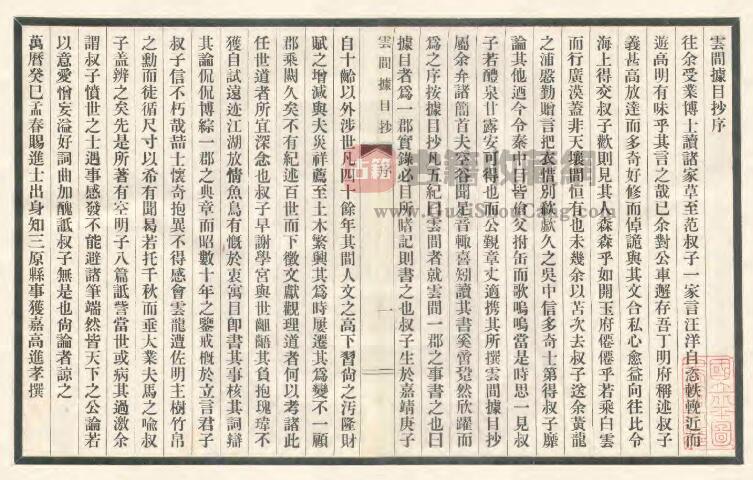 雲間據目抄序
往余受業博士讀諸家草至范叔子一家言汪洋自恣軼軼近而
遊高明有味乎其言之哉已余對公車邂存吾丁明府稱述叔子
義甚高放達而多奇好修而倬詭與其文合私心愈益向往比令
海上得交叔子歡則見其人森森乎如開玉府僊僊乎若乘白雲
而行廣漠蓋非天壤間恒有也未幾余以苦次去叔子送余黃龍
之浦盛勤贈言把衣惜別歉歉久之吳中信多奇士第得叔子靡
論其他迺今令秦中目皆傖父拊缶而歌嗚嗚當是時思一見叔
子若醴泉甘露安可得也而公覲章丈適携其所撰雲間據目抄
屬余弁諸簡首夫空谷聞足音輒喜矧讀其書奚啻跫然欣躍而
為之序按據目抄凡五紀載雲間者就雲間一郡之事書之也曰
據目者為一郡實錄必目所睹記則書之也叔子生於嘉靖庚子
雲間據目抄
序
一
自十齡以外涉世凡四十餘年其間人文之高下習尙之汚隆財
賦之增減與夫災祥薦至土木繁興其為時屢遷其為變不一顧
郡乘闕久矣不有紀述百世而下徵文獻觀理道者何以考諸此
任世道者所宜深念也叔子早謝學宮與世齟齬其負抱瑰瑋不
獲自試遠迹江湖放情魚鳥有慨於衷寓目卽書其事核其詞辯
其論侃侃博綜一郡之典章而昭數十年之鑒戒概於立言君子
叔子信不朽哉喆士懷奇抱異不得感會雲龍遭佐明主樹竹帛
之勳而徒循尺寸以希有聞曷若托千秋而垂大業夫馬之喩叔
子蓋辨之矣先是所著有空明子八篇詆訾當世或病其過激余
謂叔子憤世之士遇事感發不能避諸筆端然皆天下之公論若
以意愛憎妄溢好詞曲加醜詆叔子無是也尙論者諒之
萬曆癸巳孟春賜進士出身知三原縣事獲嘉高進孝撰
古籍